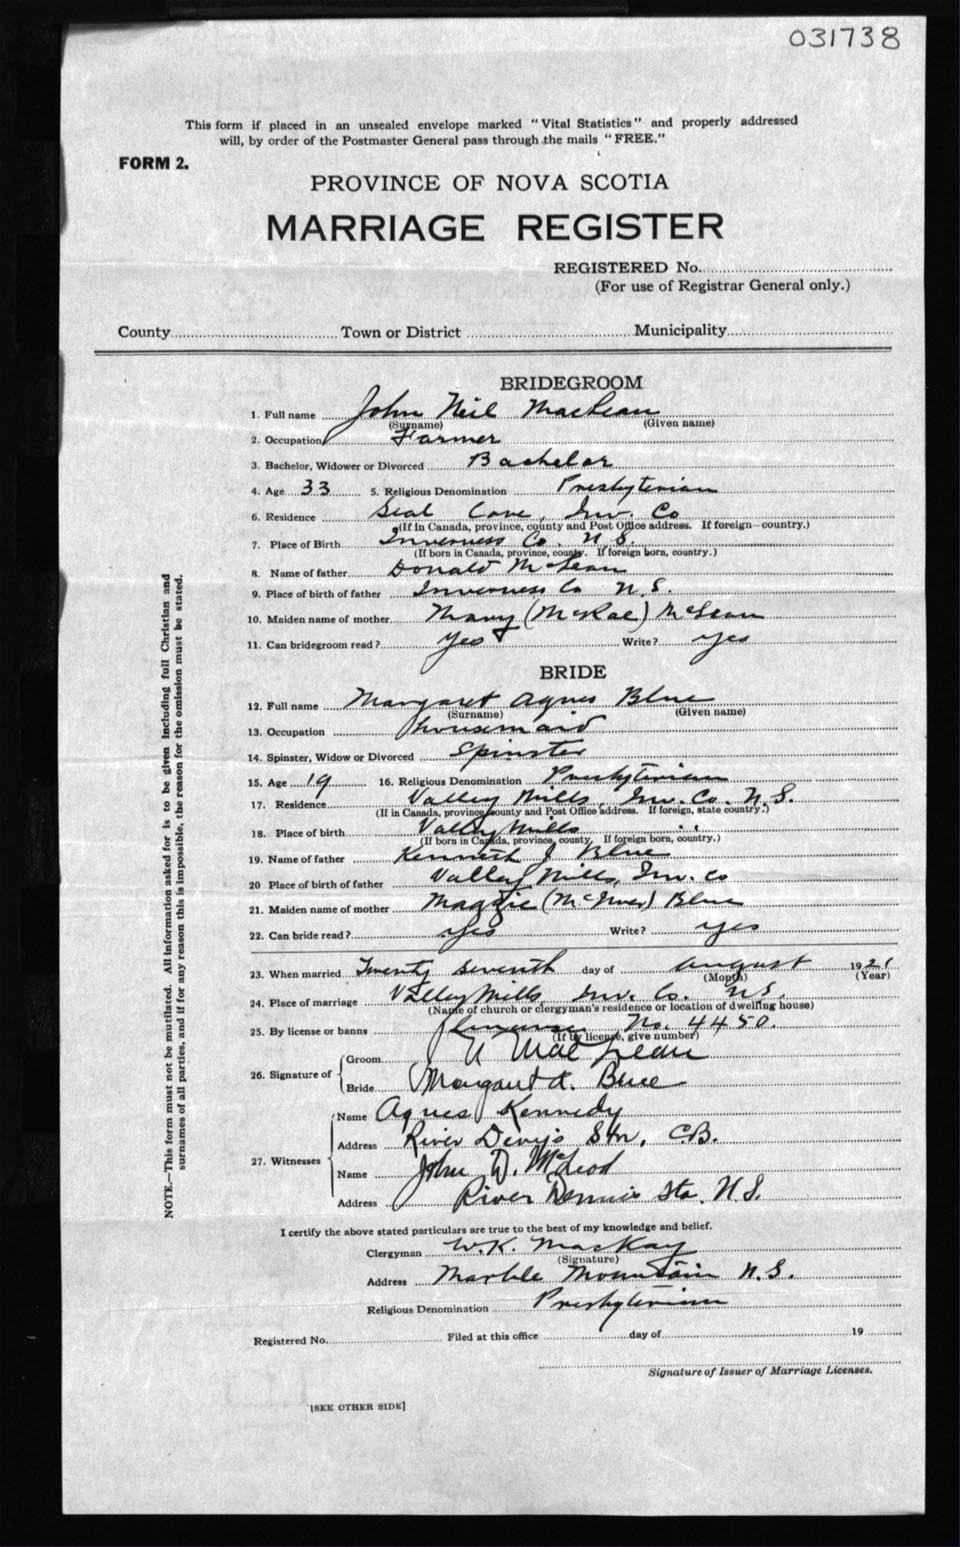 031738
This form if placed in an unsealed envelope marked "Vital Statistics" and properly addressed
will, by order of the Postmaster General pass through the mails "FREE."
FORM 2.
PROVINCE OF NOVA SCOTIA
MARRIAGE REGISTER
REGISTERED No.
(For use of Registrar General only.)
County Town or District Municipality
BRIDEGROOM
1. Full name John Neil MacLean
(Surname) (Given name)
2. Occupation Farmer
3. Bachelor, Widower or Divorced Bachelor
4. Age 33 5. Religious Denomination Presbyterian
6. Residence Seal Cove, Inv. Co
(If in Canada, province, county and Post Office address. If foreign—country.)
7. Place of Birth Inverness Co. N.S.
(If born in Canada, province, county. If foreign born, country.)
8. Name of father Donald McLean
9. Place of birth of father Inverness Co N.S.
10. Maiden name of mother Mary (McRae) McLean
11. Can bridegroom read? Yes Write? yes
BRIDE
12. Full name Margaret Agnes Blue
(Surname) (Given name)
13. Occupation housemaid
14. Spinster, Widow or Divorced Spinster
15. Age 19 16. Religious Denomination Presbyterian
17. Residence Valley Mills, Inv. Co. N.S.
(If in Canada, province, county and Post Office address. If foreign, state country.)
18. Place of birth Valley Mills " "
(If born in Canada, province, county. If foreign born, country.)
19. Name of father Kenneth J Blue
20 Place of birth of father Valley Mills, Inv. Co
21. Maiden name of mother Maggie (McIver) Blue
22. Can bride read? Yes Write? yes
23. When married Twenty Seventh day of August 1921
(Month) (Year)
24. Place of marriage Valley Mills, Inv. Co. N.S.
(Name of church or clergyman's residence or location of dwelling house)
25. By license or banns License No. 4450.
(If by license, give number)
26. Signature of Groom MacLean
Bride Margaret A. Blue
27. Witnesses Name Agnes Kennedy
Address River Denys Stn, C.B.
Name John D. McLeod
Address River Dennis Sta. N.S.
I certify the above stated particulars are true to the best of my knowledge and belief.
Clergyman W.K. MacKay
(Signature)
Address Marble Mountain N.S.
Religious Denomination Presbyterian
Registered No. Filed at this office day of 19
Signature of Issuer of Marriage Licenses.
[SEE OTHER SIDE]
NOTE.—This form must not be mutilated. All information asked for is to be given including full Christian and
surnames of all parties, and if for any reason this is impossible, the reason for the omission must be stated.